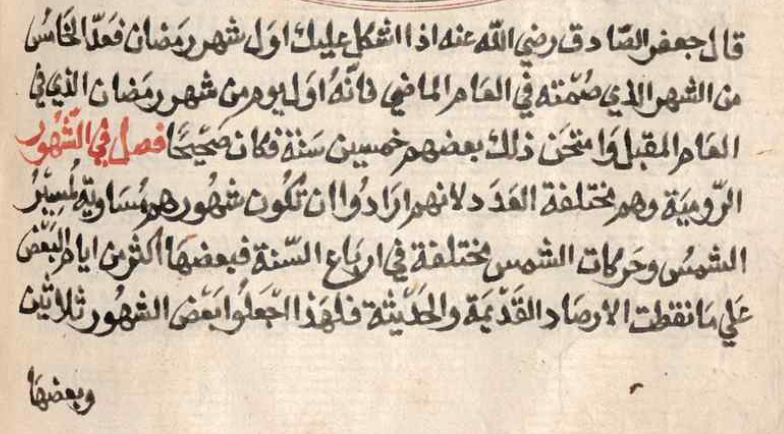 قال جعفر الصّادق رضي اللّه عنه اذا اشكل عليك اوّل شهر رمَضان فعَدّ الخامسُ
من الشهر الذي صُمْته في العَام الماضي فانّهُ اوّل يوم من شهر رمَضان الذي في
العَام المقبل وَامتحَن ذلك بعضهم خمسين سَنة فكان صَحيْحًا فصل في الشّهُور
الرّوميَة وهم مختلفة العَدَد لانهم ارَادُوا ان تكون شهُورهم مُسَاويَة لمَسِيْرُ
الشمسُ وحَركات الشمس مختلفة في ارباع السّنة فبعضهَا اكثر من ايام البَعْض
عَلي مَا نقطت الارصَاد القَدْيمَة والحَديْثة فلهَذا اجْعَلُوا بَعْض الشهُور ثلاثين
وبعضهَا